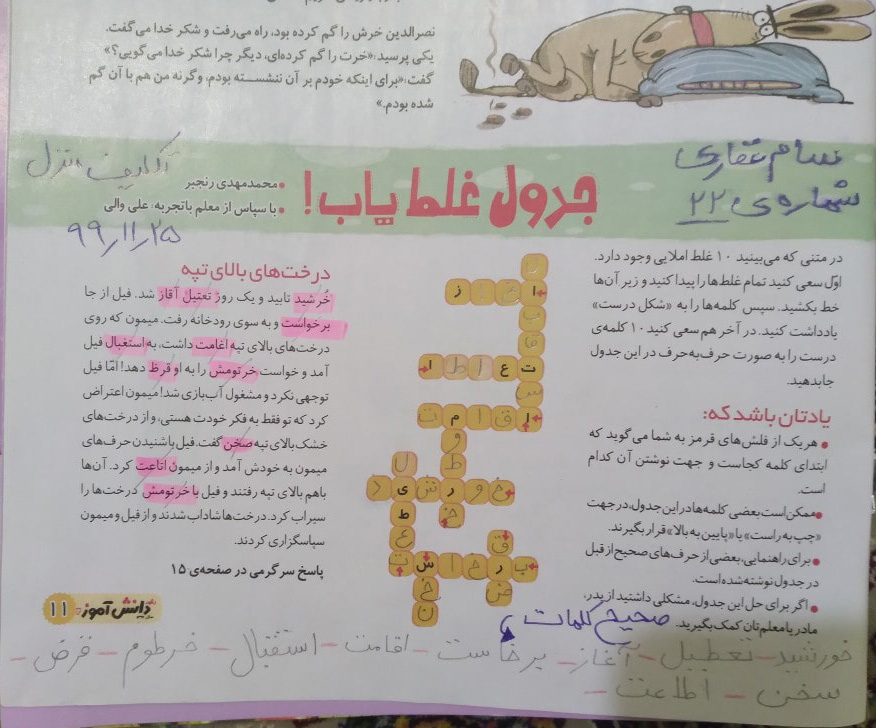 نصرالدین خرش را گم کرده بود، راه می‌رفت و شکر خدا می‌گفت.
یکی پرسید: «خرت را گم کرده‌ای، دیگر چرا شکر خدا می‌گویی؟»
گفت: «برای اینکه خودم بر آن ننشسـته بودم، وگرنه من هم با آن گم
شده بودم.»
سام غفاری
شماره‌ی ۲۲
تکلیف منزل
۹۹/۱۱/۲۵
جدول غلط یاب!
• محمدمهدی رنجبر
• با سپاس از معلم باتجربه: علی والی
در متنی که می‌بینید ۱۰ غلط املایی وجود دارد.
اوّل سعی کنید تمام غلط‌ها را پیدا کنید و زیر آن‌ها
خط بکشید. سپس کلمه‌ها را به «شکل درست»
یادداشت کنید. در آخر هم سعی کنید ۱۰ کلمه‌ی
درست را به صورت حرف‌به‌حرف در این جدول
جا بدهید.
یادتان باشد که:
• هر یک از فلش‌های قرمز به شما می‌گوید که
ابتدای کلمه کجاست و جهت نوشتن آن کدام
است.
• ممکن است بعضی کلمه‌ها در این جدول، در جهت
«چپ به راست» یا «پایین به بالا» قرار بگیرند.
• برای راهنمایی، بعضی از حرف‌های صحیح از قبل
در جدول نوشته شده است.
• اگر برای حل این جدول، مشکلی داشتید از پدر،
مادر یا معلم‌تان کمک بگیرید.
درخت‌های بالای تپه
خُرشید تابید و یک روز تعتیل آقاز شد. فیل از جا
برخواست و به سوی رودخانه رفت. میمون که روی
درخت‌های بالای تپه اغامت داشت، به استغبال فیل
آمد و خواست خرتومش را به او قرظ دهد! امّا فیل
توجهی نکرد و مشغول آب‌بازی شد! میمون اعتراض
کرد که تو فقط به فکر خودت هستی، و از درخت‌های
خشک بالای تپه صخن گفت. فیل با شنیدن حرف‌های
میمون به خودش آمد و از میمون اتاعت کرد. آن‌ها
باهم بالای تپه رفتند و فیل با خرتومش درخت‌ها را
سیراب کرد. درخت‌ها شاداب شدند و از فیل و میمون
سپاسگزاری کردند.
پاسخ سرگرمی در صفحه‌ی ۱۵
دانش آموز ۱۱
صحیح کلمات
خورشید – تعطیل – آغاز – برخاست – اقامت – استقبال – خرطوم – قرض –
سخن – اطاعت –